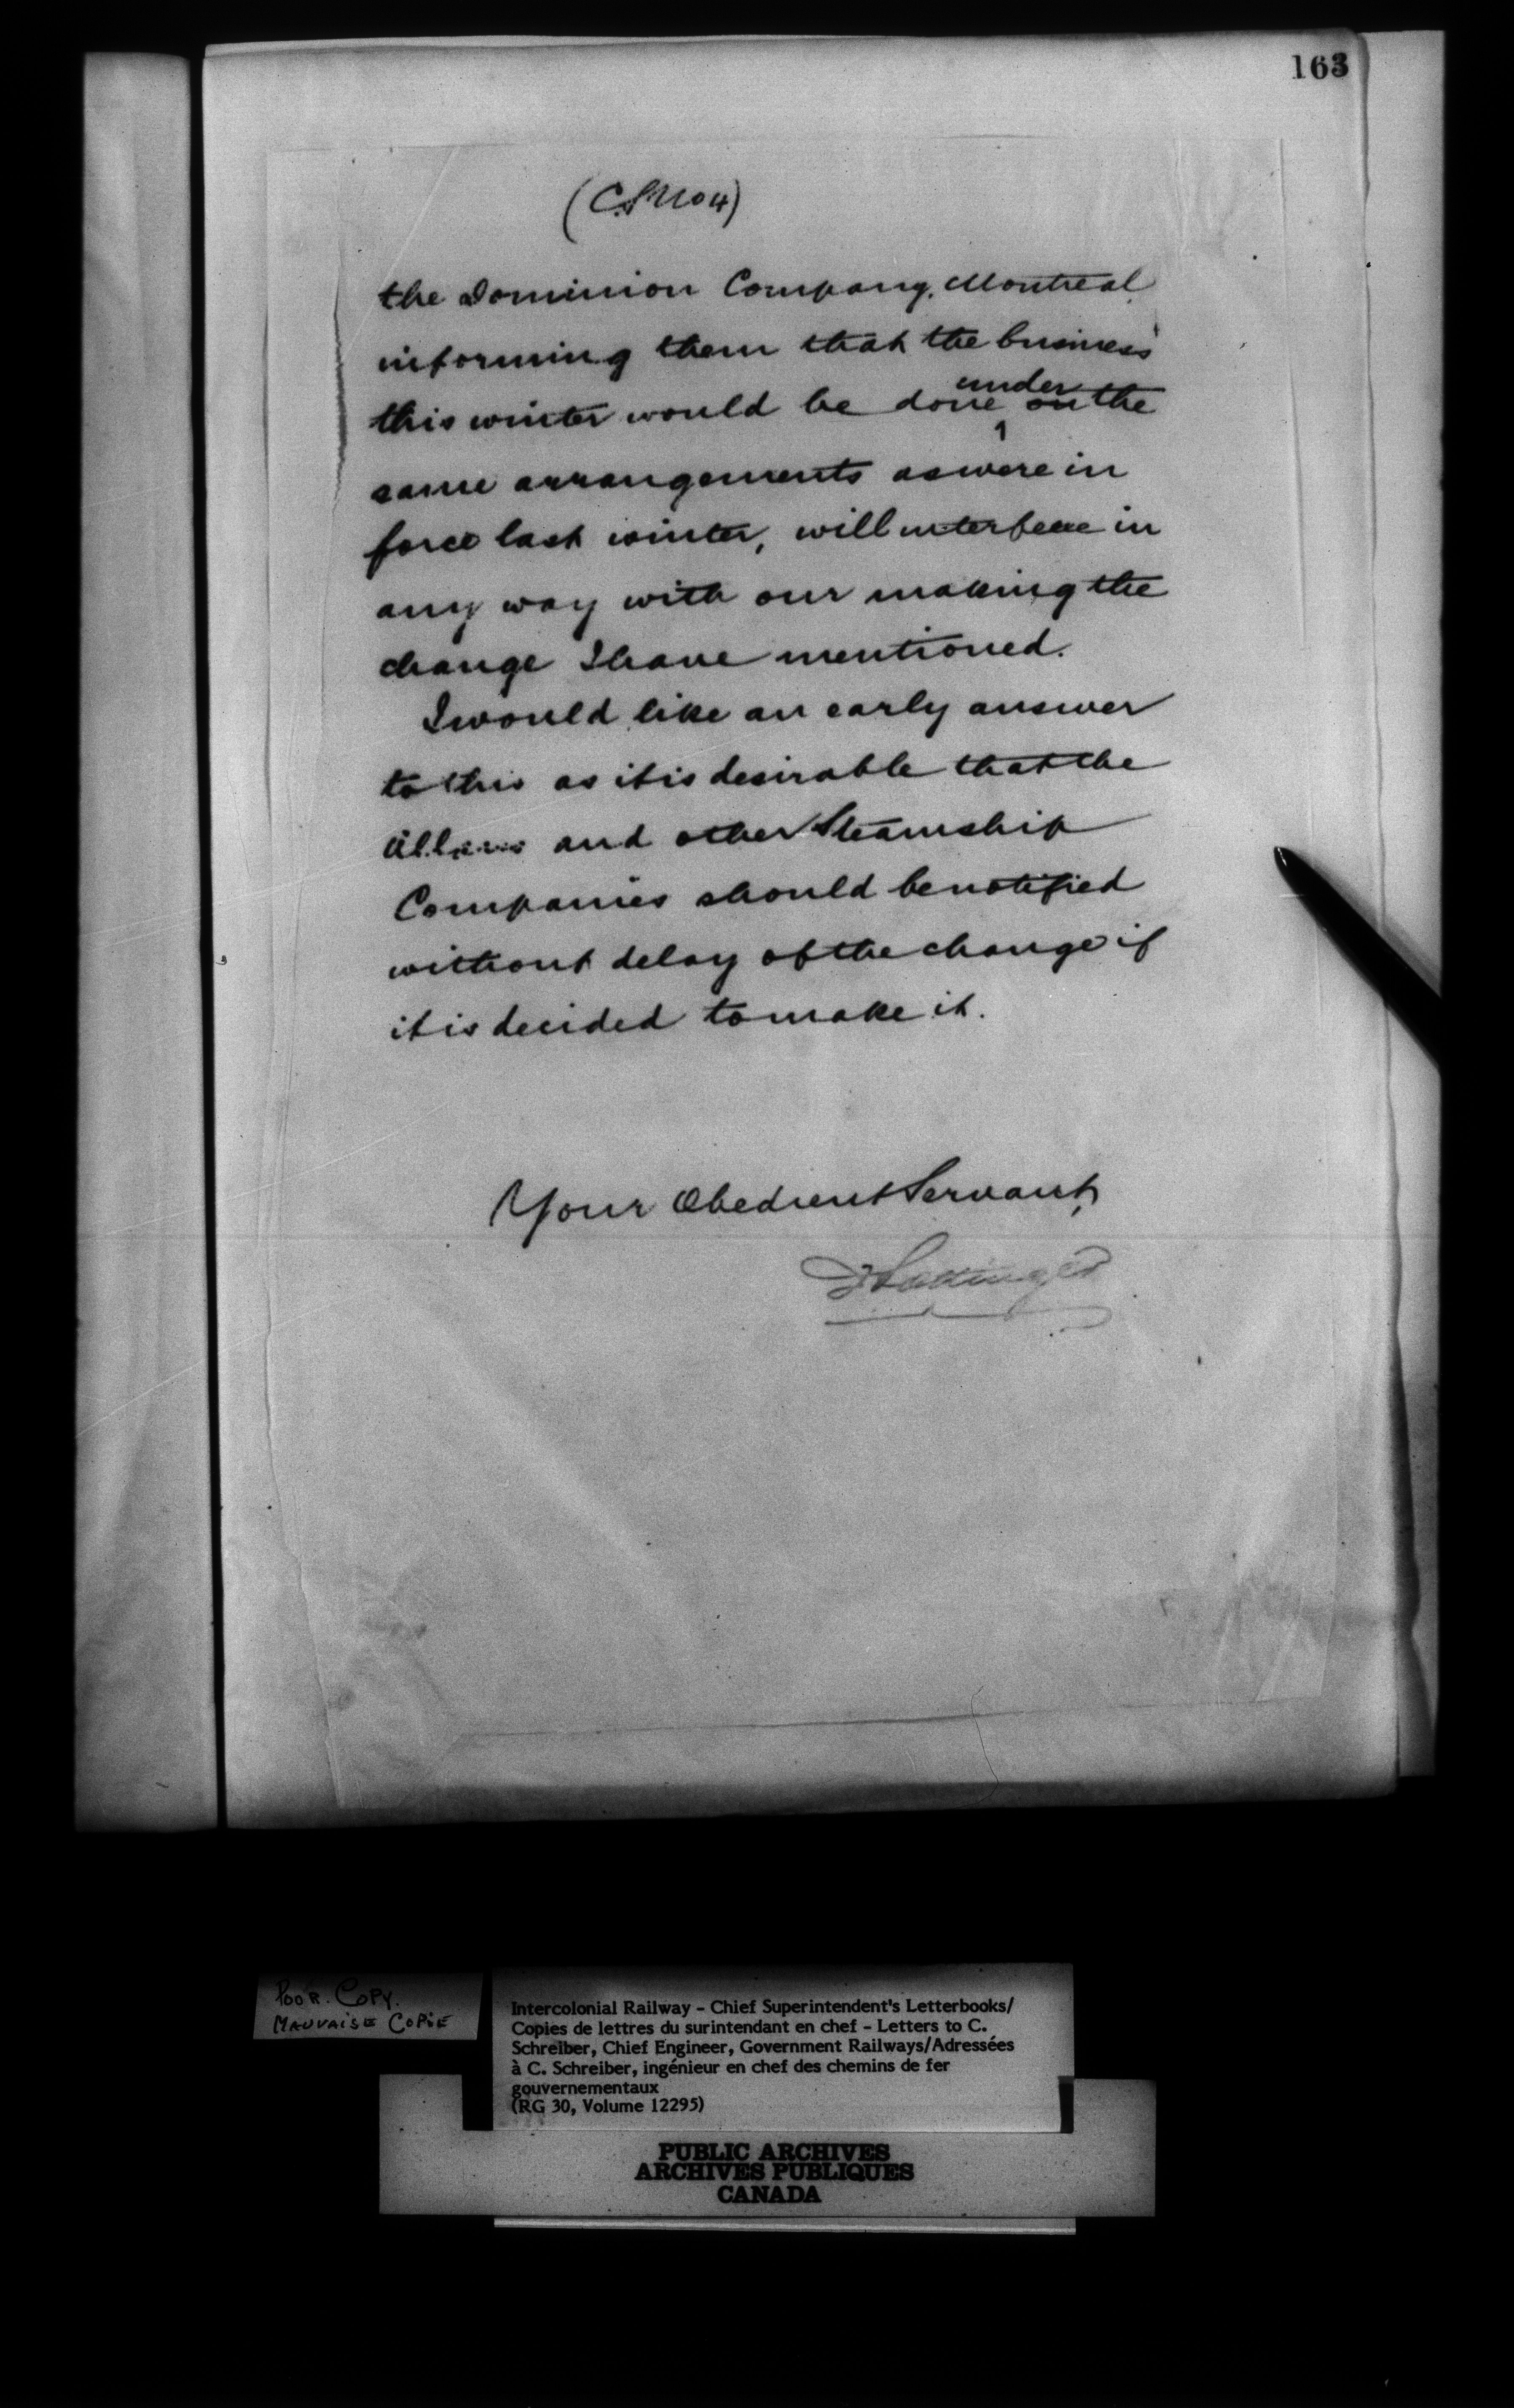 163
(C.S. No 4)
the Dominion Company, Montreal
informing them that the business
this winter would be done under on the
same arrangements as were in
force last winter, will interfere in
any way with our making the
change I have mentioned.
I would like an early answer
to this as it is desirable that the
Allans and other Steamship
Companies should be notified
without delay of the change if
it is decided to make it.
Your Obedient Servant,
D Pottinger
POOR. COPY.
MAUVAISE COPIE
Intercolonial Railway - Chief Superintendent's Letterbooks/
Copies de lettres du surintendant en chef - Letters to C.
Schreiber, Chief Engineer, Government Railways/Adressées
à C. Schreiber, ingénieur en chef des chemins de fer
gouvernementaux
(RG 30, Volume 12295)
PUBLIC ARCHIVES
ARCHIVES PUBLIQUES
CANADA